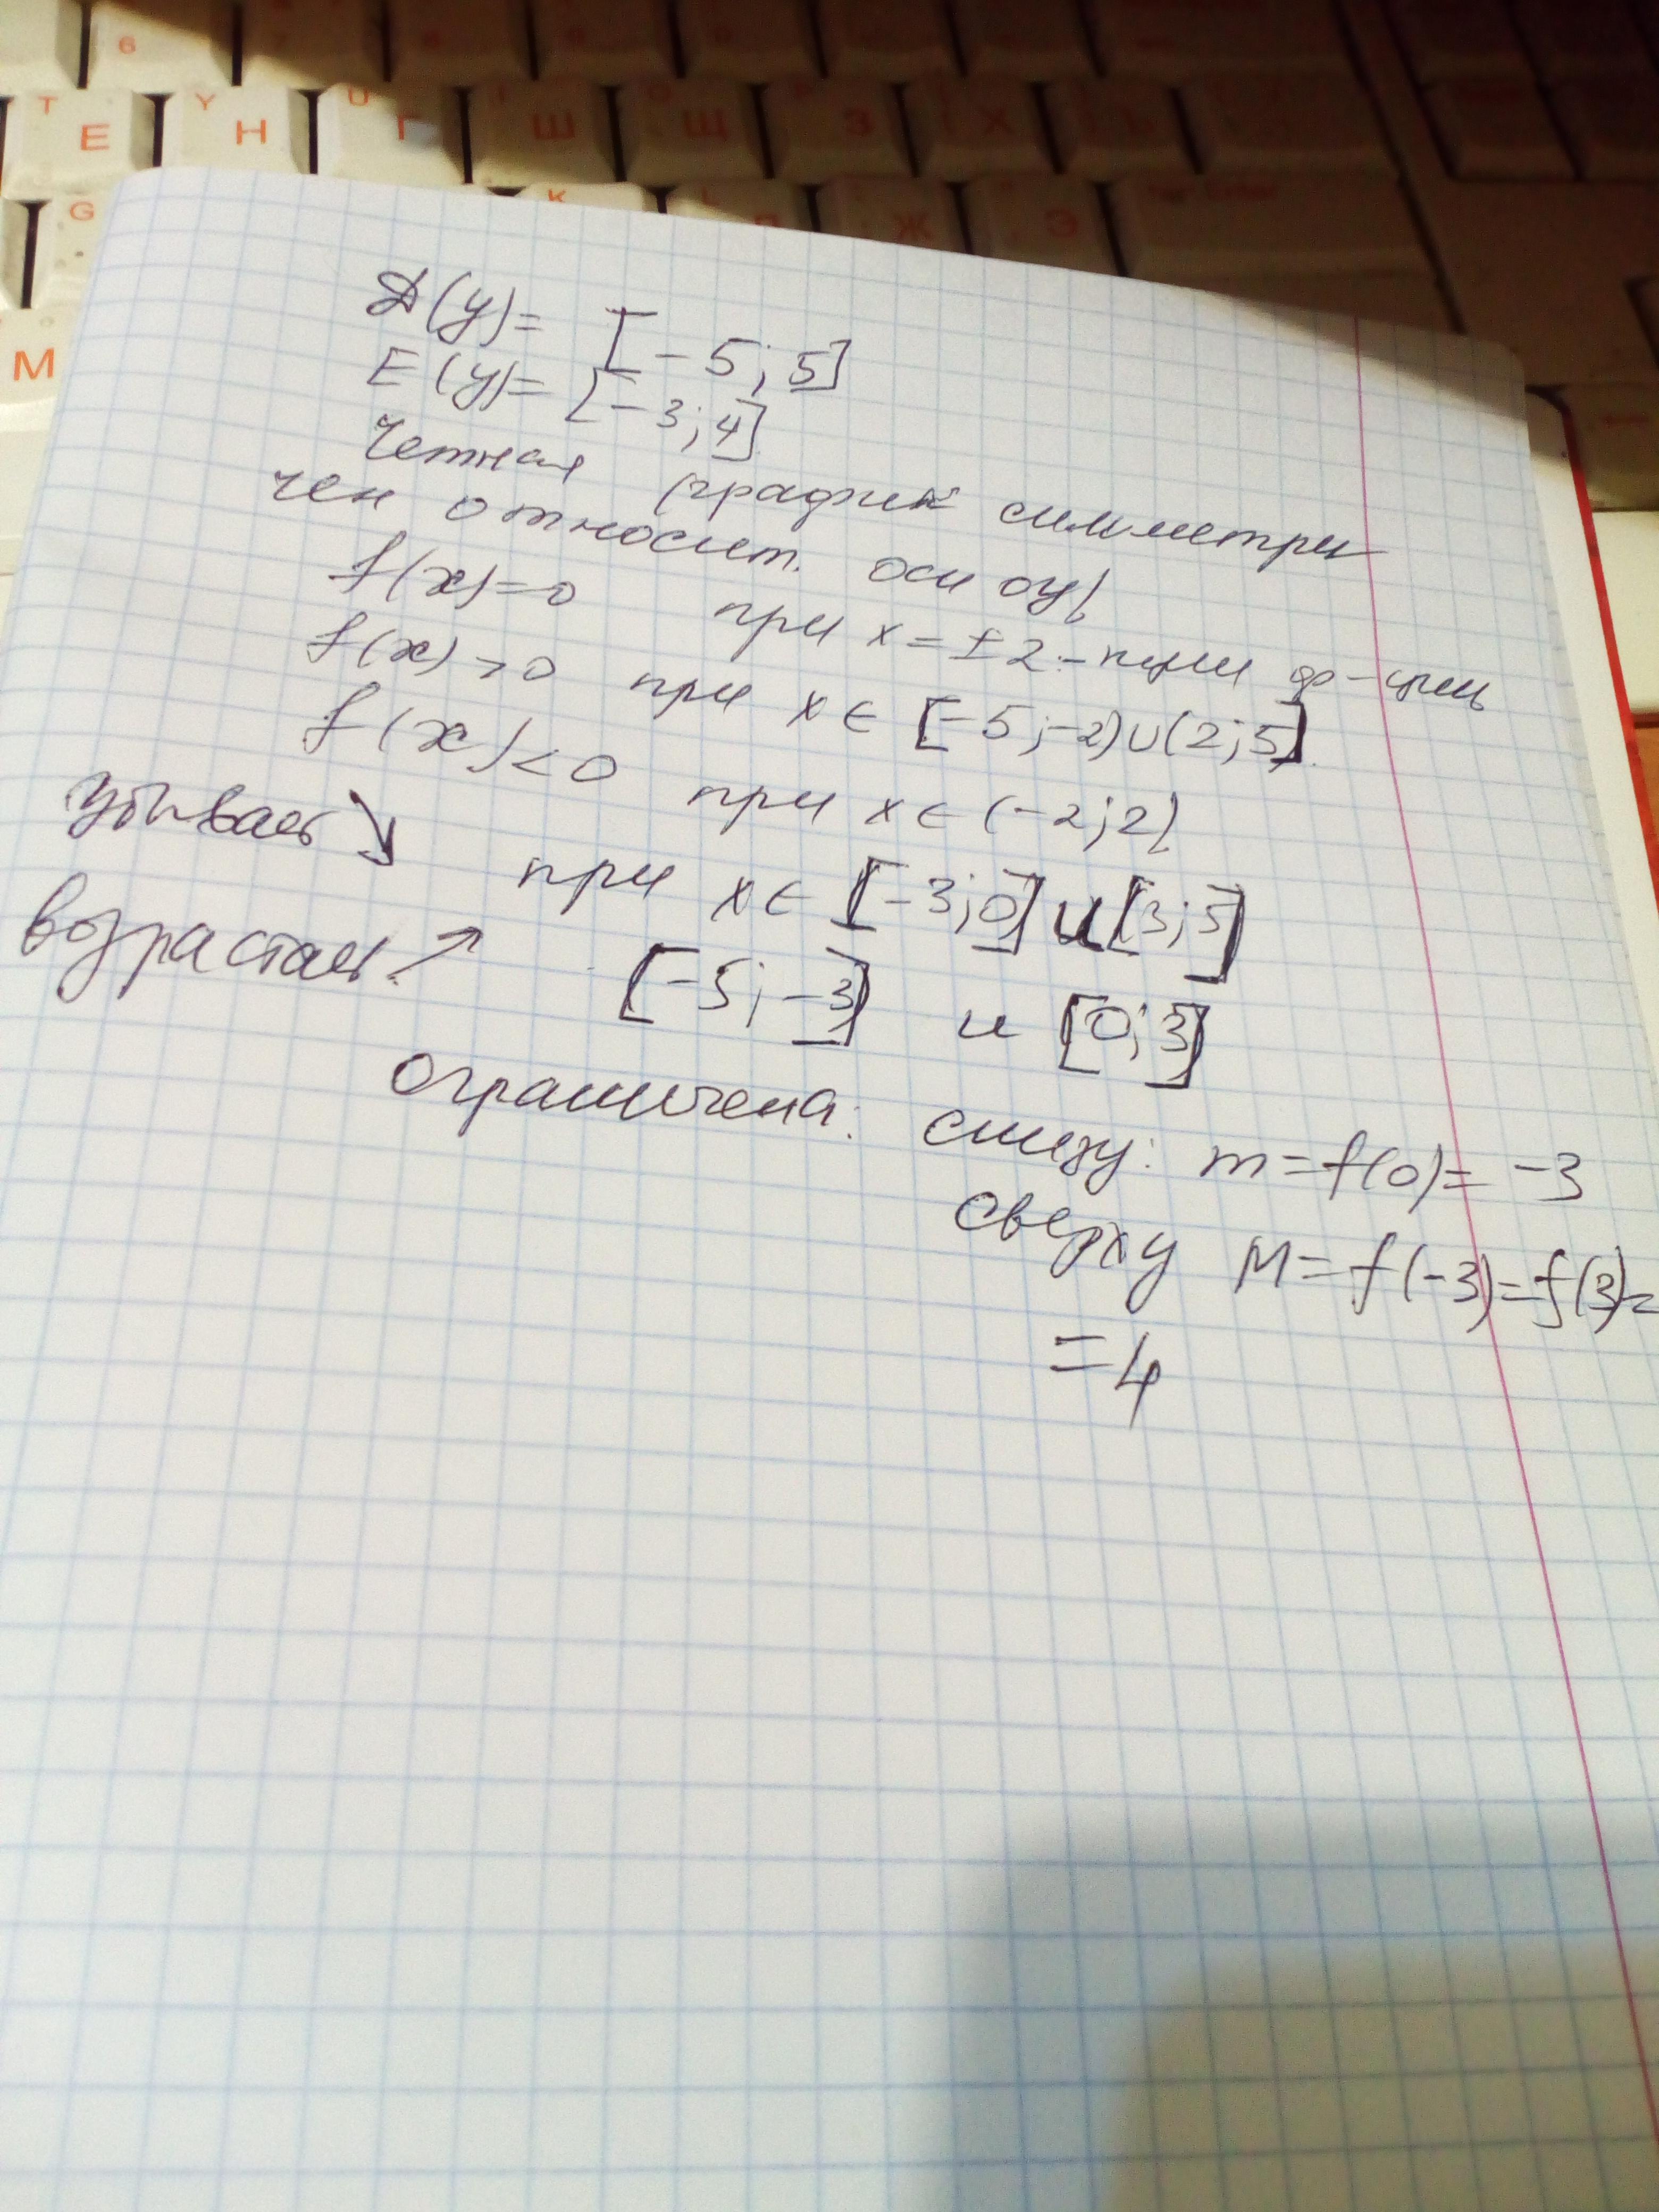 6
T Е Y Н U Г Ш Щ З Х
G K L Ж Э
М
D(y)= [-5; 5]
E(y)= [-3; 4]
четная (график симметри
чен относит. оси оу)
f(x)=0 при x=±2 - нули ф-ции
f(x)>0 при x∈[-5;-2)∪(2;5]
f(x)<0 при x∈(-2;2)
убывает ↘ при x∈[-3;0] и [3;5]
возрастает ↗ [-5;-3] и [0;3]
ограничена: снизу: m=f(0)= -3
сверху M=f(-3)=f(3)=
=4